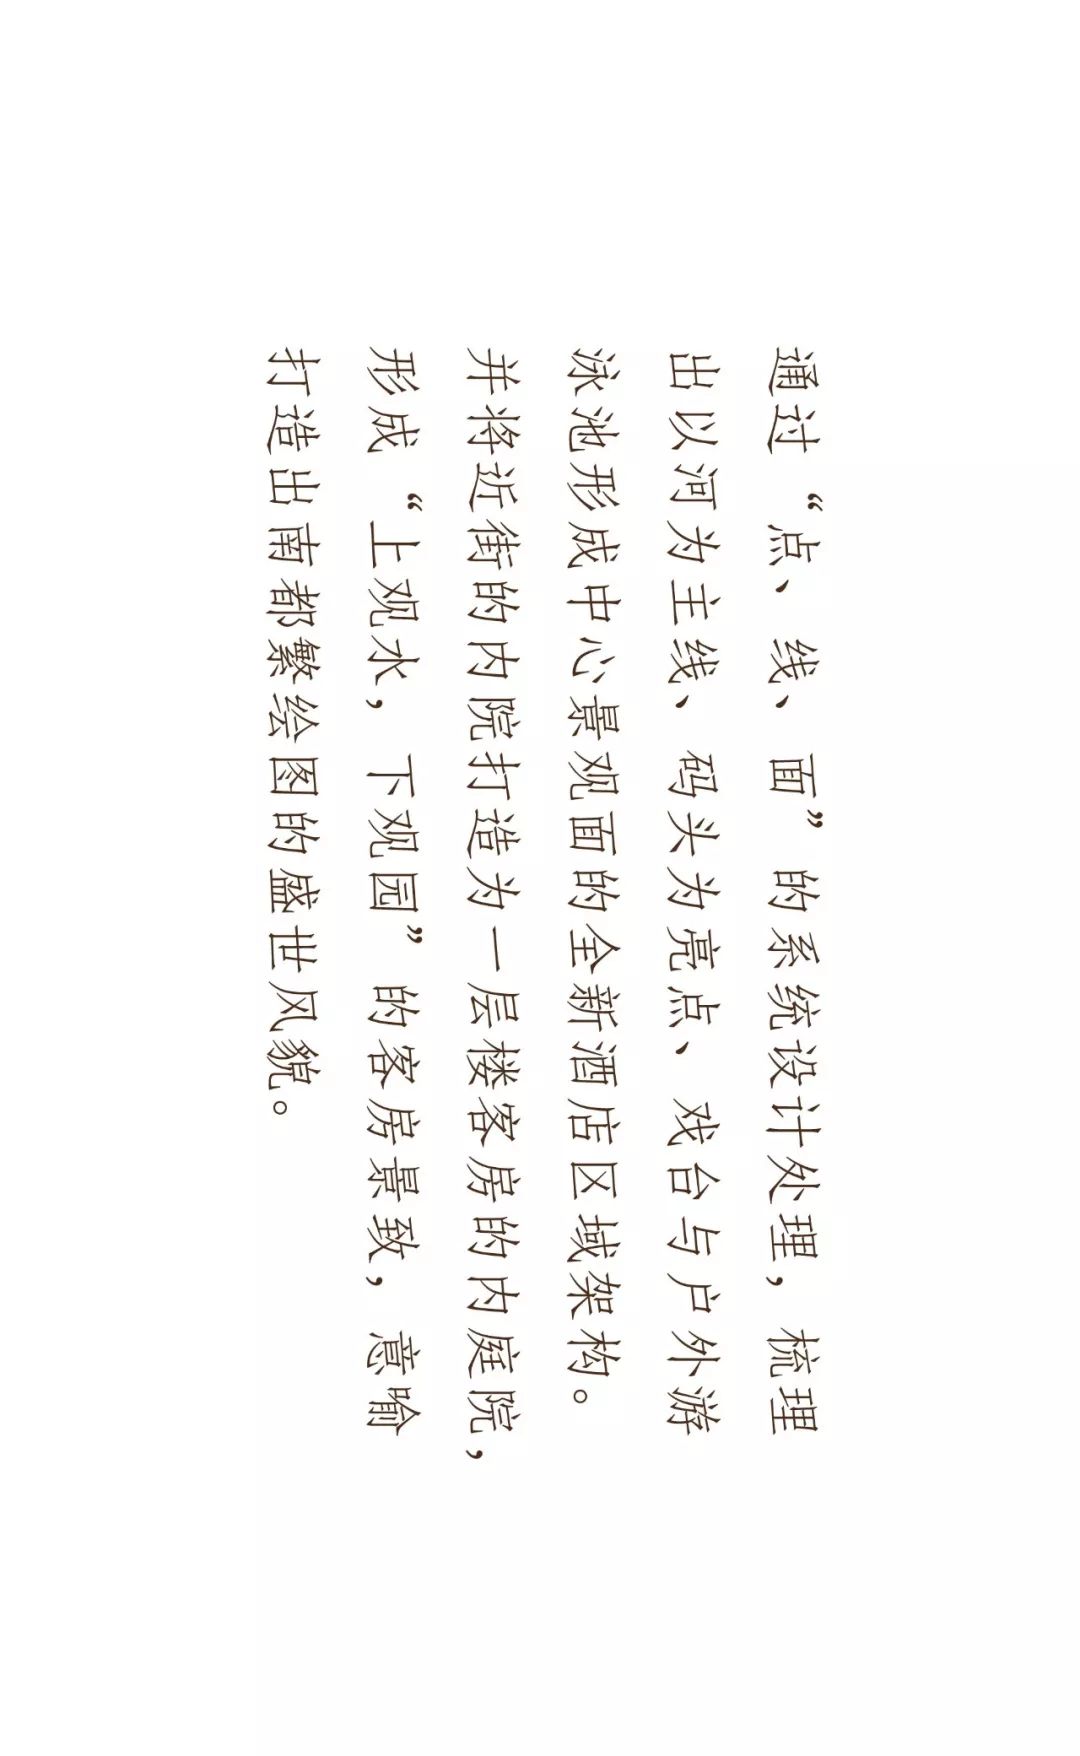 通过“点、线、面”的系统设计处理，梳理
出以河为主线、码头为亮点、戏台与户外游
泳池形成中心景观面的全新酒店区域架构。
并将近街的内院打造为一层楼客房的内庭院，
形成“上观水，下观园”的客房景致，意喻
打造出南都繁绘图的盛世风貌。